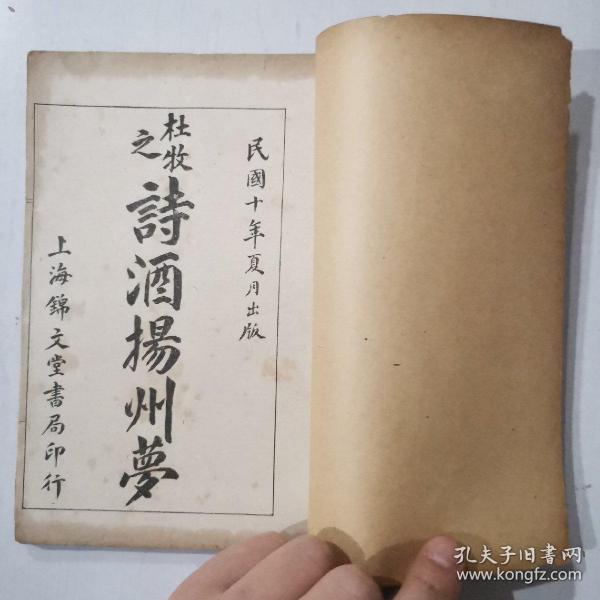 民國十年夏月出版
杜牧之
詩酒揚州夢
上海錦文堂書局印行
孔夫子旧书网
www.kongfz.com